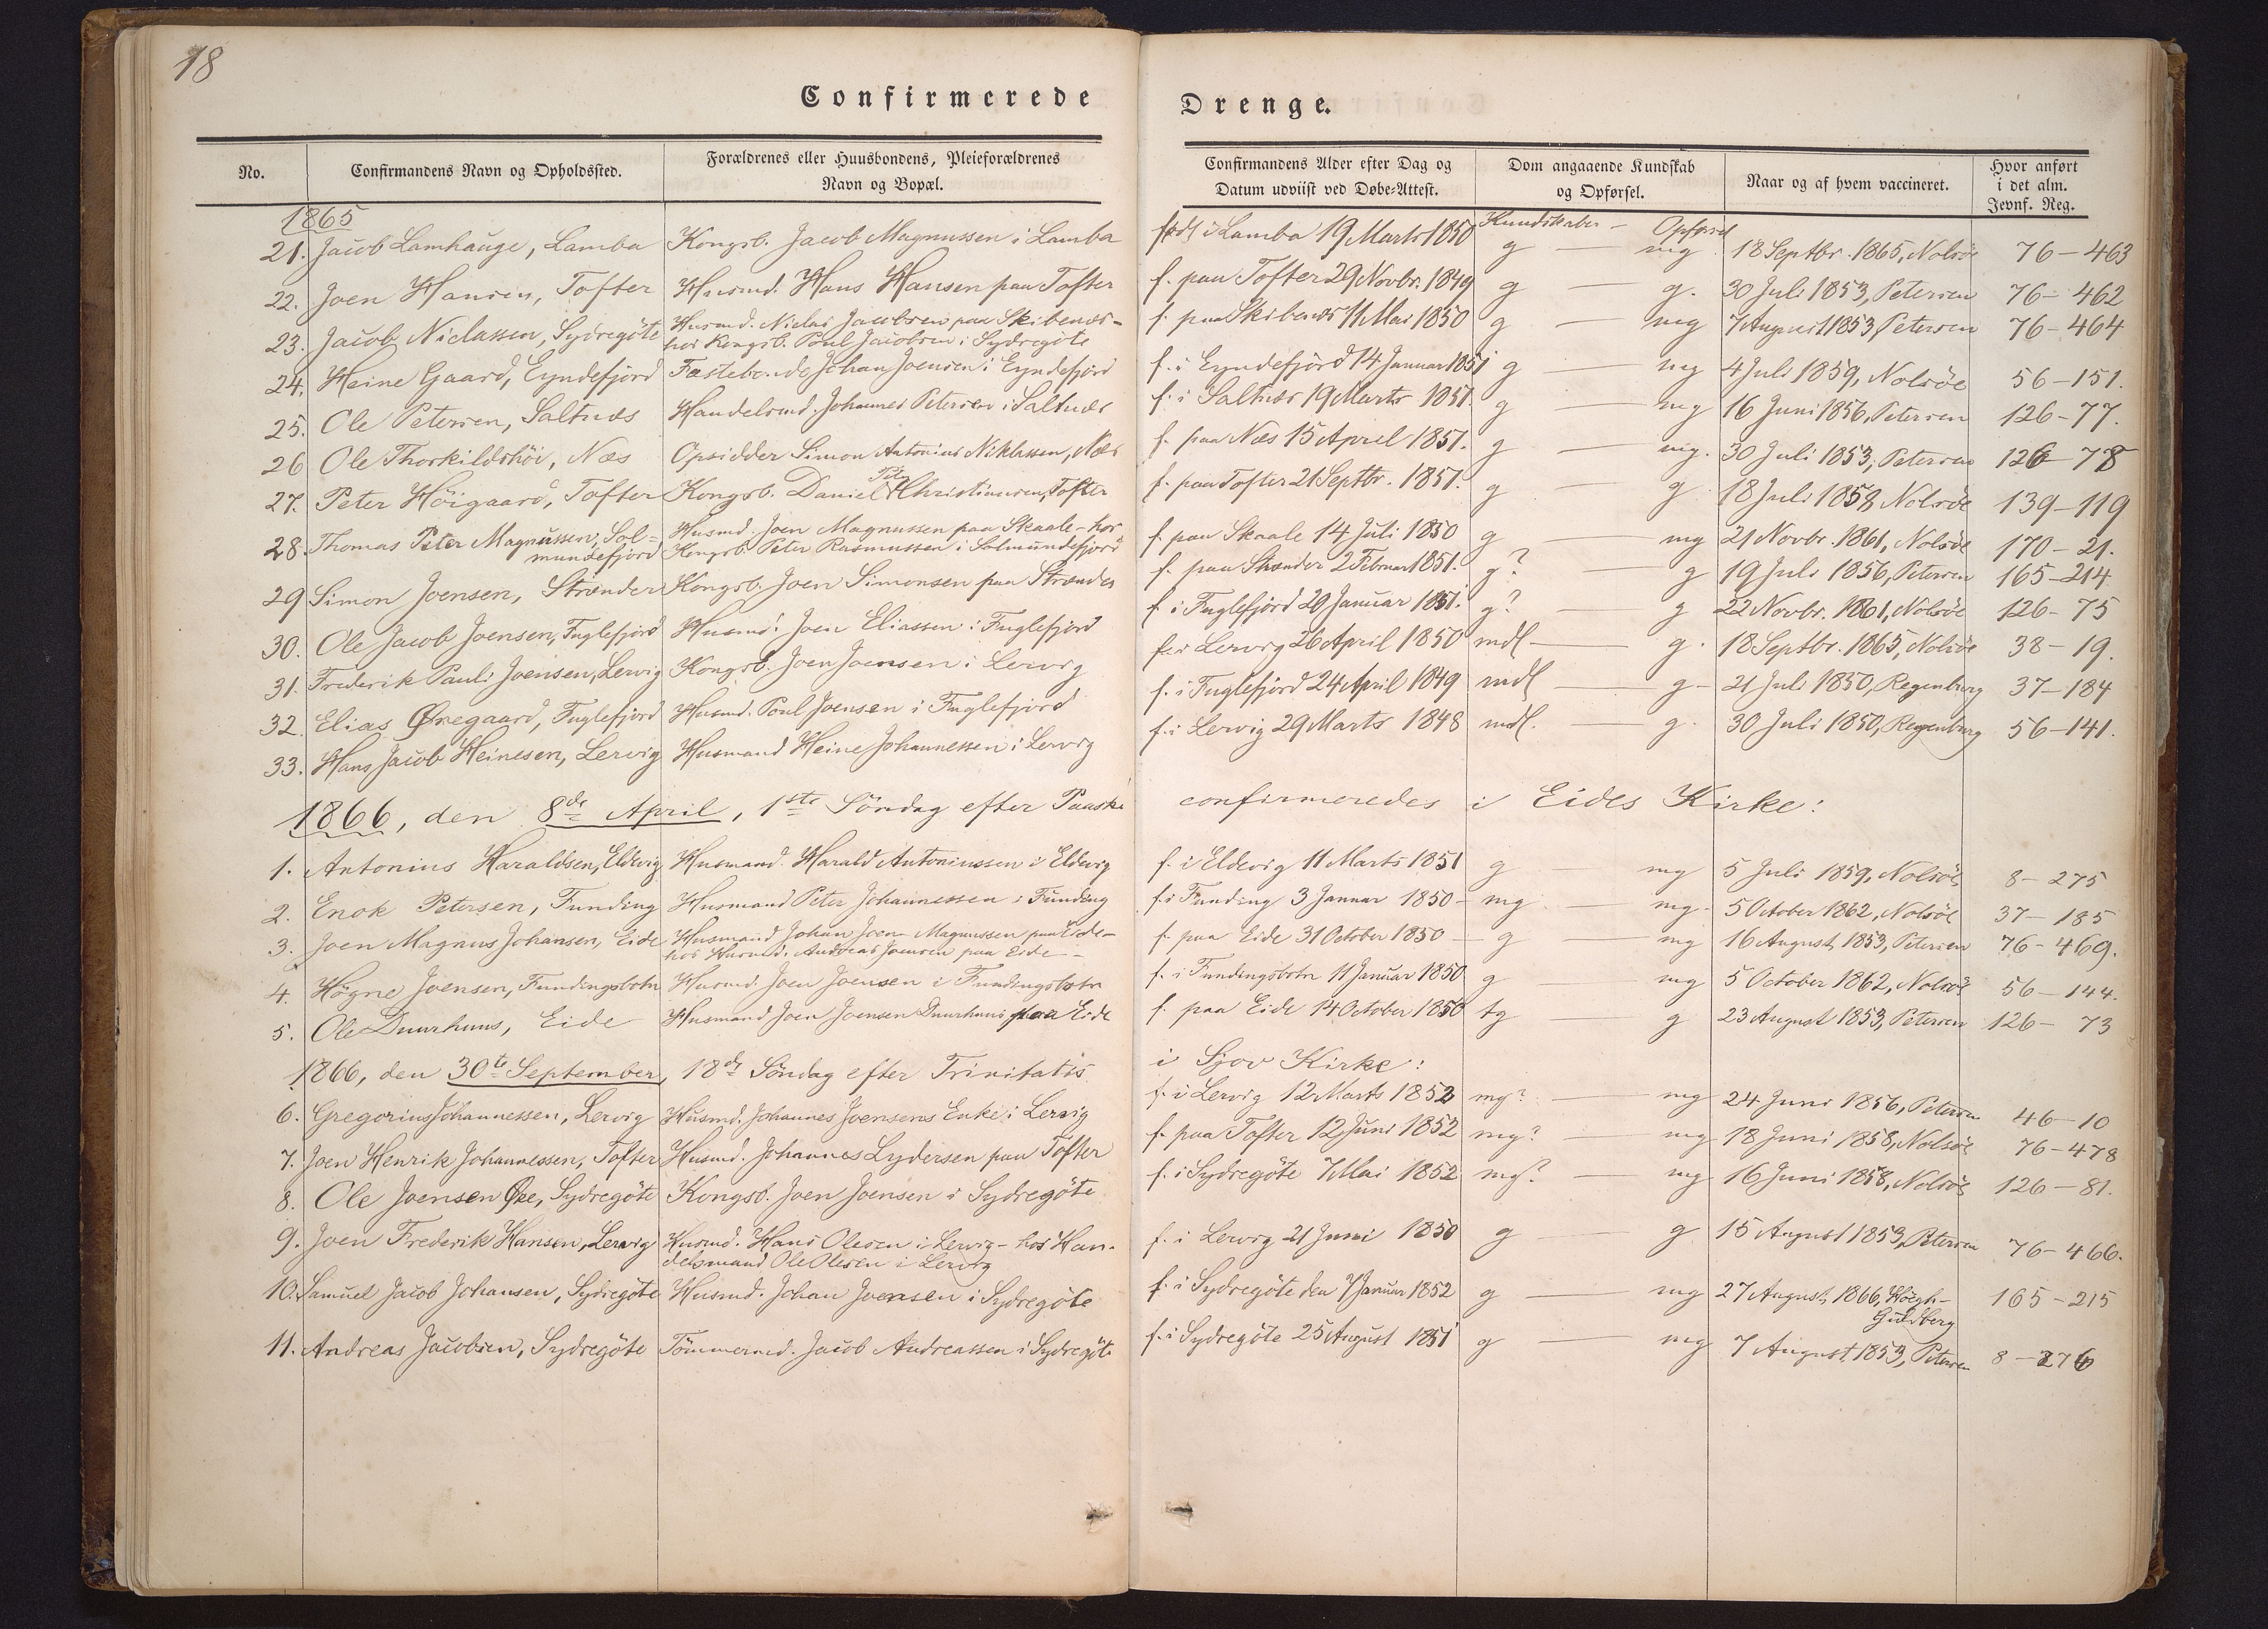 18
Confirmerede Drenge.
No. Confirmandens Navn og Opholdssted. Forældrenes eller Huusbondens, Pleieforældrenes Navn og Bopæl. Confirmandens Alder efter Dag og Datum udviist ved Døbe-Attest. Dom angaaende Kundskab og Opførsel. Naar og af hvem vaccineret. Hvor anført i det alm. Jevnf. Reg.
1865 Kundskaber - Opførsel
21. Jacob Lamhauge, Lamba Kongsb. Jacob Magnussen i Lamba født i Lamba 19 Marts 1850 g — mg 18 Septbr. 1865, Nolsöe 76-463
22. Joen Hansen, Tofter Husmd. Hans Hansen paa Tofter f. paa Tofter 29 Novbr. 1849 g — g. 30 Juli 1853, Petersen 76-462
23. Jacob Niclassen, Sydregöte Husmd. Niclas Jacobsen paa Skibenæs- f. paa Skibenæs 11 Mai 1850 g — mg 7 August 1853 Petersen 76-464
hos Kongsb. Poul Jacobsen i Sydregöte
24. Heine Gaard, Eyndefjord Fæstebonde Johan Joensen i Eyndefjord f. i Eyndefjörd 14 Januar 1851 g — mg 4 Juli 1859, Nolsöe 56-151.
25. Ole Petersen, Saltnæs Handelsmd. Johannes Petersen i Saltnæs f. i Saltnæs 19 Marts 1851. g — mg 16 Juni 1856, Petersen 126-77.
26 Ole Thorkildshöi, Næs Opsidder Simon Antonius Niklassen, Næs f. paa Næs 15 April 1851. g — mg. 30 Juli 1853, Petersen 126-78
27. Peter Höigaard, Tofter Kongsb. Daniel Christiansen, Tofter f. paa Tofter 21 Septbr. 1851. g — g 18 Juli 1858 Nolsöe 139-119
28. Thomas Peter Magnussen, Sol= Husmd. Joen Magnussen paa Skaale - hos f. paa Skaale 14 Juli 1850 g — mg 21 Novbr. 1861, Nolsöe 170-21.
mundefjord Kongsb. Peter Rasmussen i Solmundefjord
29 Simon Joensen, Strænder Kongsb. Joen Simonsen paa Strænder f. paa Strænder 2 Februar 1851. g? — g 19 Juli 1856, Petersen 165-214.
30. Ole Jacob Joensen, Fuglefjord Husmd. Joen Eliassen i Fuglefjord f. i Fuglefjörd 20 Januar 1851. g? — g 22 Novbr. 1861, Nolsöe 126-75
31. Frederik Pauli Joensen, Lervig Kongsb. Joen Joensen i Lervig f. i Lervig 26 April 1850 mdl — g. 18 Septbr. 1865, Nolsöe 38-19.
32. Elias Ørregaard, Fuglefjörd Husmd. Poul Joensen i Fuglefjord f. i Fuglefjörd 24 April 1849 mdl — g- 21 Juli 1850, Regenburg 37-184
33. Hans Jacob Heinesen, Lervig Husmand Heine Johannessen i Lervig f. i Lervig 29 Marts 1848 mdl. — g. 30 Juli 1850, Regenburg 56-141.
1866, den 8de April, 1ste Söndag efter Paaske confirmeredes i Eides Kirke:
1. Antonius Haraldsen, Eldevig Husmand Harald Antoniussen i Eldevig f. i Eldevig 11 Marts 1851 g — mg 5 Juli 1859, Nolsöe 8-275
2. Enok Petersen, Funding Husmand Peter Johannessen i Funding f. i Funding 3 Januar 1850 - mg — mg. 5 October 1862, Nolsöe 37-185
3. Joen Magnus Johansen, Eide Husmand Johan Joen Magnussen paa Eide- f. paa Eide 31 October 1850 — g — mg 16 August 1853, Petersen 76-469.
hos Husmd. Andreas Joensen paa Eide-
4. Högne Joensen, Fundingsbotn Husmd. Joen Joensen i Fundingsbotn f. i Fundingsbotn 11 Januar 1850 g — mg 5 October 1862, Nolsöe 56-144.
5. Ole Duurhuus, Eide Husmand Joen Joensen Duurhuus paa Eide f. paa Eide 14 October 1850 tg — g 23 August 1853, Petersen 126- 73
1866, den 30te September, 18de Söndag efter Trinitatis i Sjov Kirke:
6. Gregorius Johannessen, Lervig Husmd. Johannes Joensens Enke i Lervig f. i Lervig 12 Marts 1852 mg? — mg 24 Juni 1856, Petersen 46-10
7. Joen Henrik Johannessen, Tofter Husmd. Johannes Lydersen paa Tofter f. paa Tofter 12 Juni 1852 mg? — mg 18 Juni 1858, Nolsöe 76-478
8. Ole Joensen Øre, Sydregöte Kongsb. Joen Joensen i Sydregöte f. i Sydregöte 7 Mai 1852 mg? — mg 16 Juni 1858, Nolsöe 126-81.
9. Joen Frederik Hansen, Lervig Husmd. Hans Olesen i Lervig - hos Han- f. i Lervig 21 Juni 1850 g — g 15 August 1853, Petersen 76-466.
delsmand Ole Olesen i Lervig
10. Samuel Jacob Johansen, Sydregöte Husmd. Johan Joensen i Sydregöte f. i Sydregöte den 7 Januar 1852 g — mg 27 August 1866, Höegh- 165-215
Guldberg
11. Andreas Jacobsen, Sydregöte Tömmermd. Jacob Andreassen i Sydregöte f. i Sydregöte 25 August 1851 g — mg 7 August 1853, Petersen 8-276